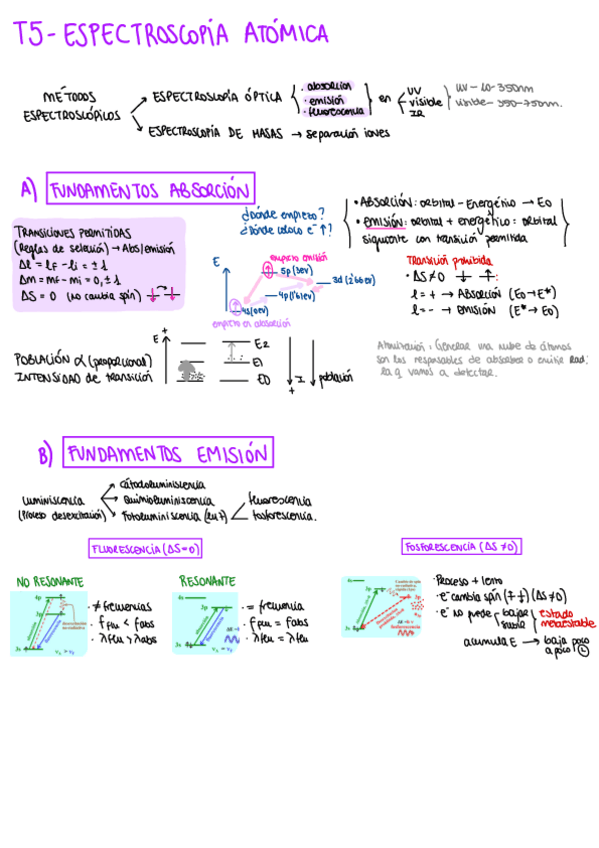 T5-ESPECTROSCOPÍA ATÓMICA
MÉTODOS ESPECTROSCÓPICOS
ESPECTROSCOPÍA ÓPTICA
· absorción
· emisión
· fluorescencia
en
UV
visible
IR
UV-10-350nm
visible-350-750nm.
ESPECTROSCOPÍA DE MASAS → separación iones
A) FUNDAMENTOS ABSORCIÓN
TRANSICIONES PERMITIDAS
(Reglas de selección) → Abs/emisión
Δl = lF - li = ±1
Δm = mf - mi = 0, ±1
ΔS = 0 (no cambia spin)
¿Dónde empiezo?
¿Dónde coloco e⁻↑?
E
empiezo emisión
5p (3eV)
3d (2'66eV)
4p (1'61eV)
4s (0eV)
empiezo en absorción
• ABSORCIÓN: orbital - Energético → E0
• EMISIÓN: orbital + energético = orbital
siguiente con transición permitida
Transición prohibida
• ΔS≠0
l = + → ABSORCIÓN (E0→E*)
l = - → EMISIÓN (E*→E0)
POBLACIÓN α (proporcional)
INTENSIDAD de transición
E +
E2
E1
E0
I población
+
Atomización: Generar una nube de átomos
son los responsables de absorber o emitir Rad;
la q vamos a detectar.
B) FUNDAMENTOS EMISIÓN
luminiscencia
(Proceso desexcitación)
Cátodoluminiscencia
Quimioluminiscencia
Fotoluminiscencia (luz)
fluorescencia
fosforescencia.
FLUORESCENCIA (ΔS=0)
FOSFORESCENCIA (ΔS≠0)
NO RESONANTE
4p
3p
3s
ν₁ > ν₂
· ≠ frecuencias
· fflu < fabs
· λflu > λabs
RESONANTE
4s
3p
3s
ν₁ = ν₂
· = frecuencia
· fflu = fabs
· λflu = λflu
4s
3p
3s
· Proceso + lento
· e⁻ cambia spin (ΔS≠0)
· e⁻ no puede
bajar
subir
estado
metaestable
acumula E → baja poco
a poco